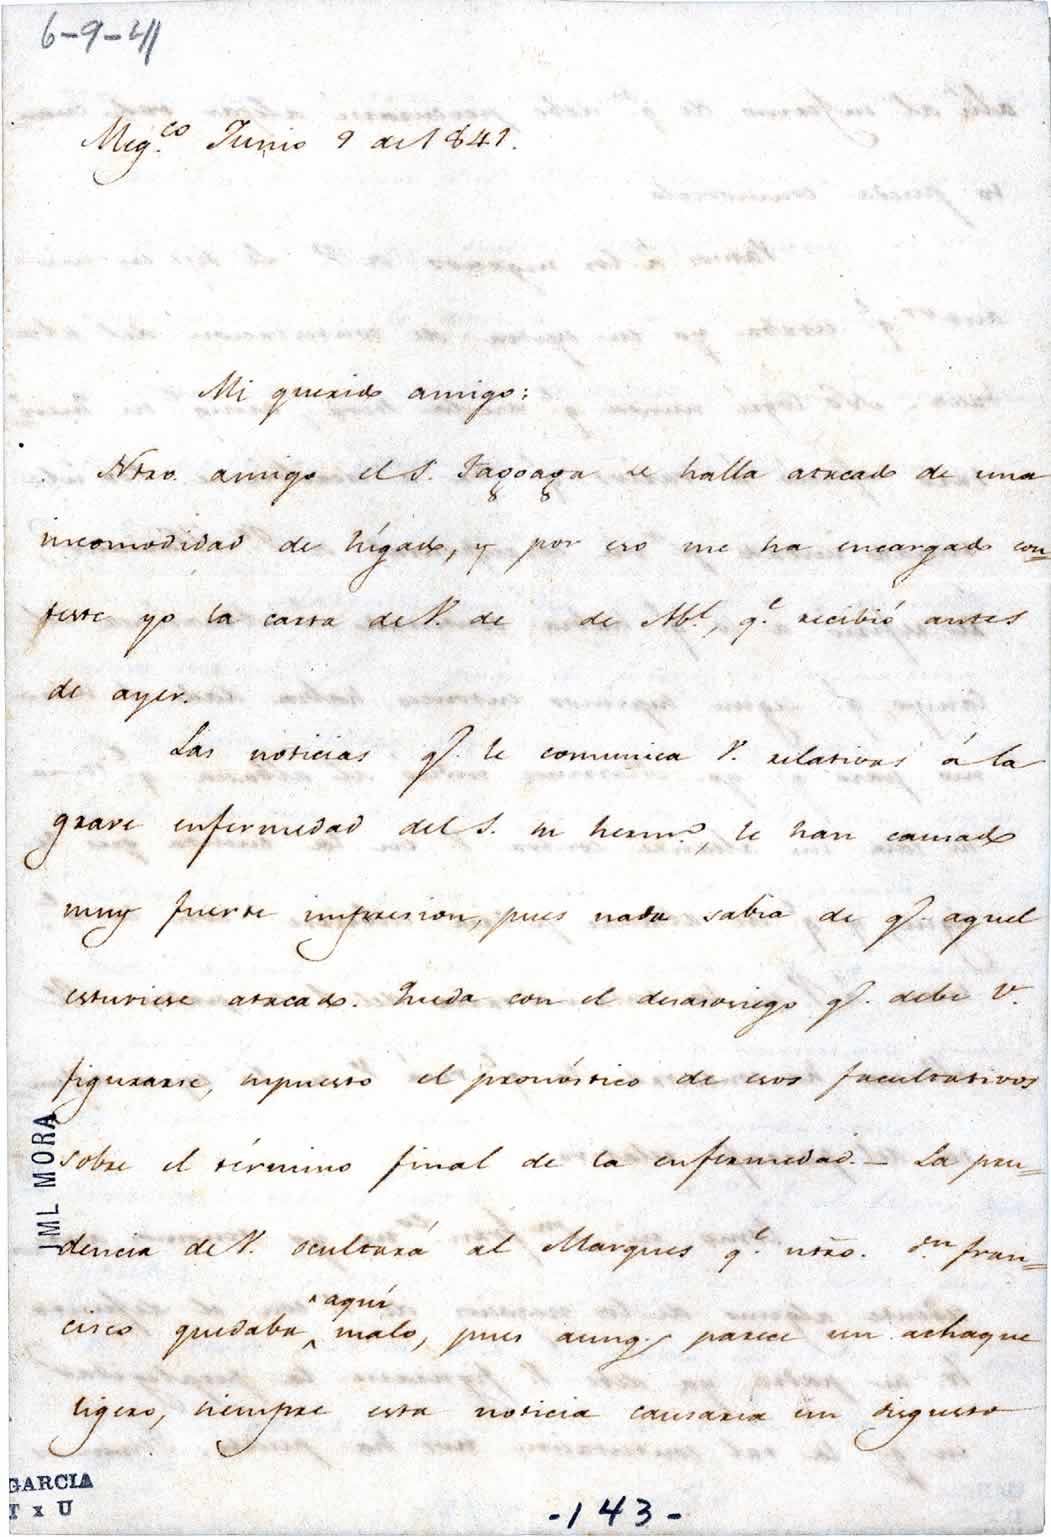 6-9-41
Mejᶜᵒ Junio 9 de 1841.
Mi querido amigo:
Ntro. amigo el S. Fagoaga se halla atacado de una
incomodidad de hígado, y por eso me ha encargado con=
teste yo la carta de V. de de Abl., qe. recibió antes
de ayer.
Las noticias q. le comunica V. relativas á la
grave enfermedad del S. su hermo., le han causado
muy fuerte impresion, pues nada sabia de q. aquel
estuviese atacado. Queda con el desasosiego q. debe V.
figurarse, supuesto el pronóstico de esos facultativos
sobre el término final de la enfermedad. — La pru=
dencia de V. ocultará al Marques qe. ntro. Dn. Fran=
cisco quedaba aquí malo, pues aunq. parece un achaque
ligero, siempre esta noticia causaria un disgusto
JML MORA
GARCIA
T x U
-143-